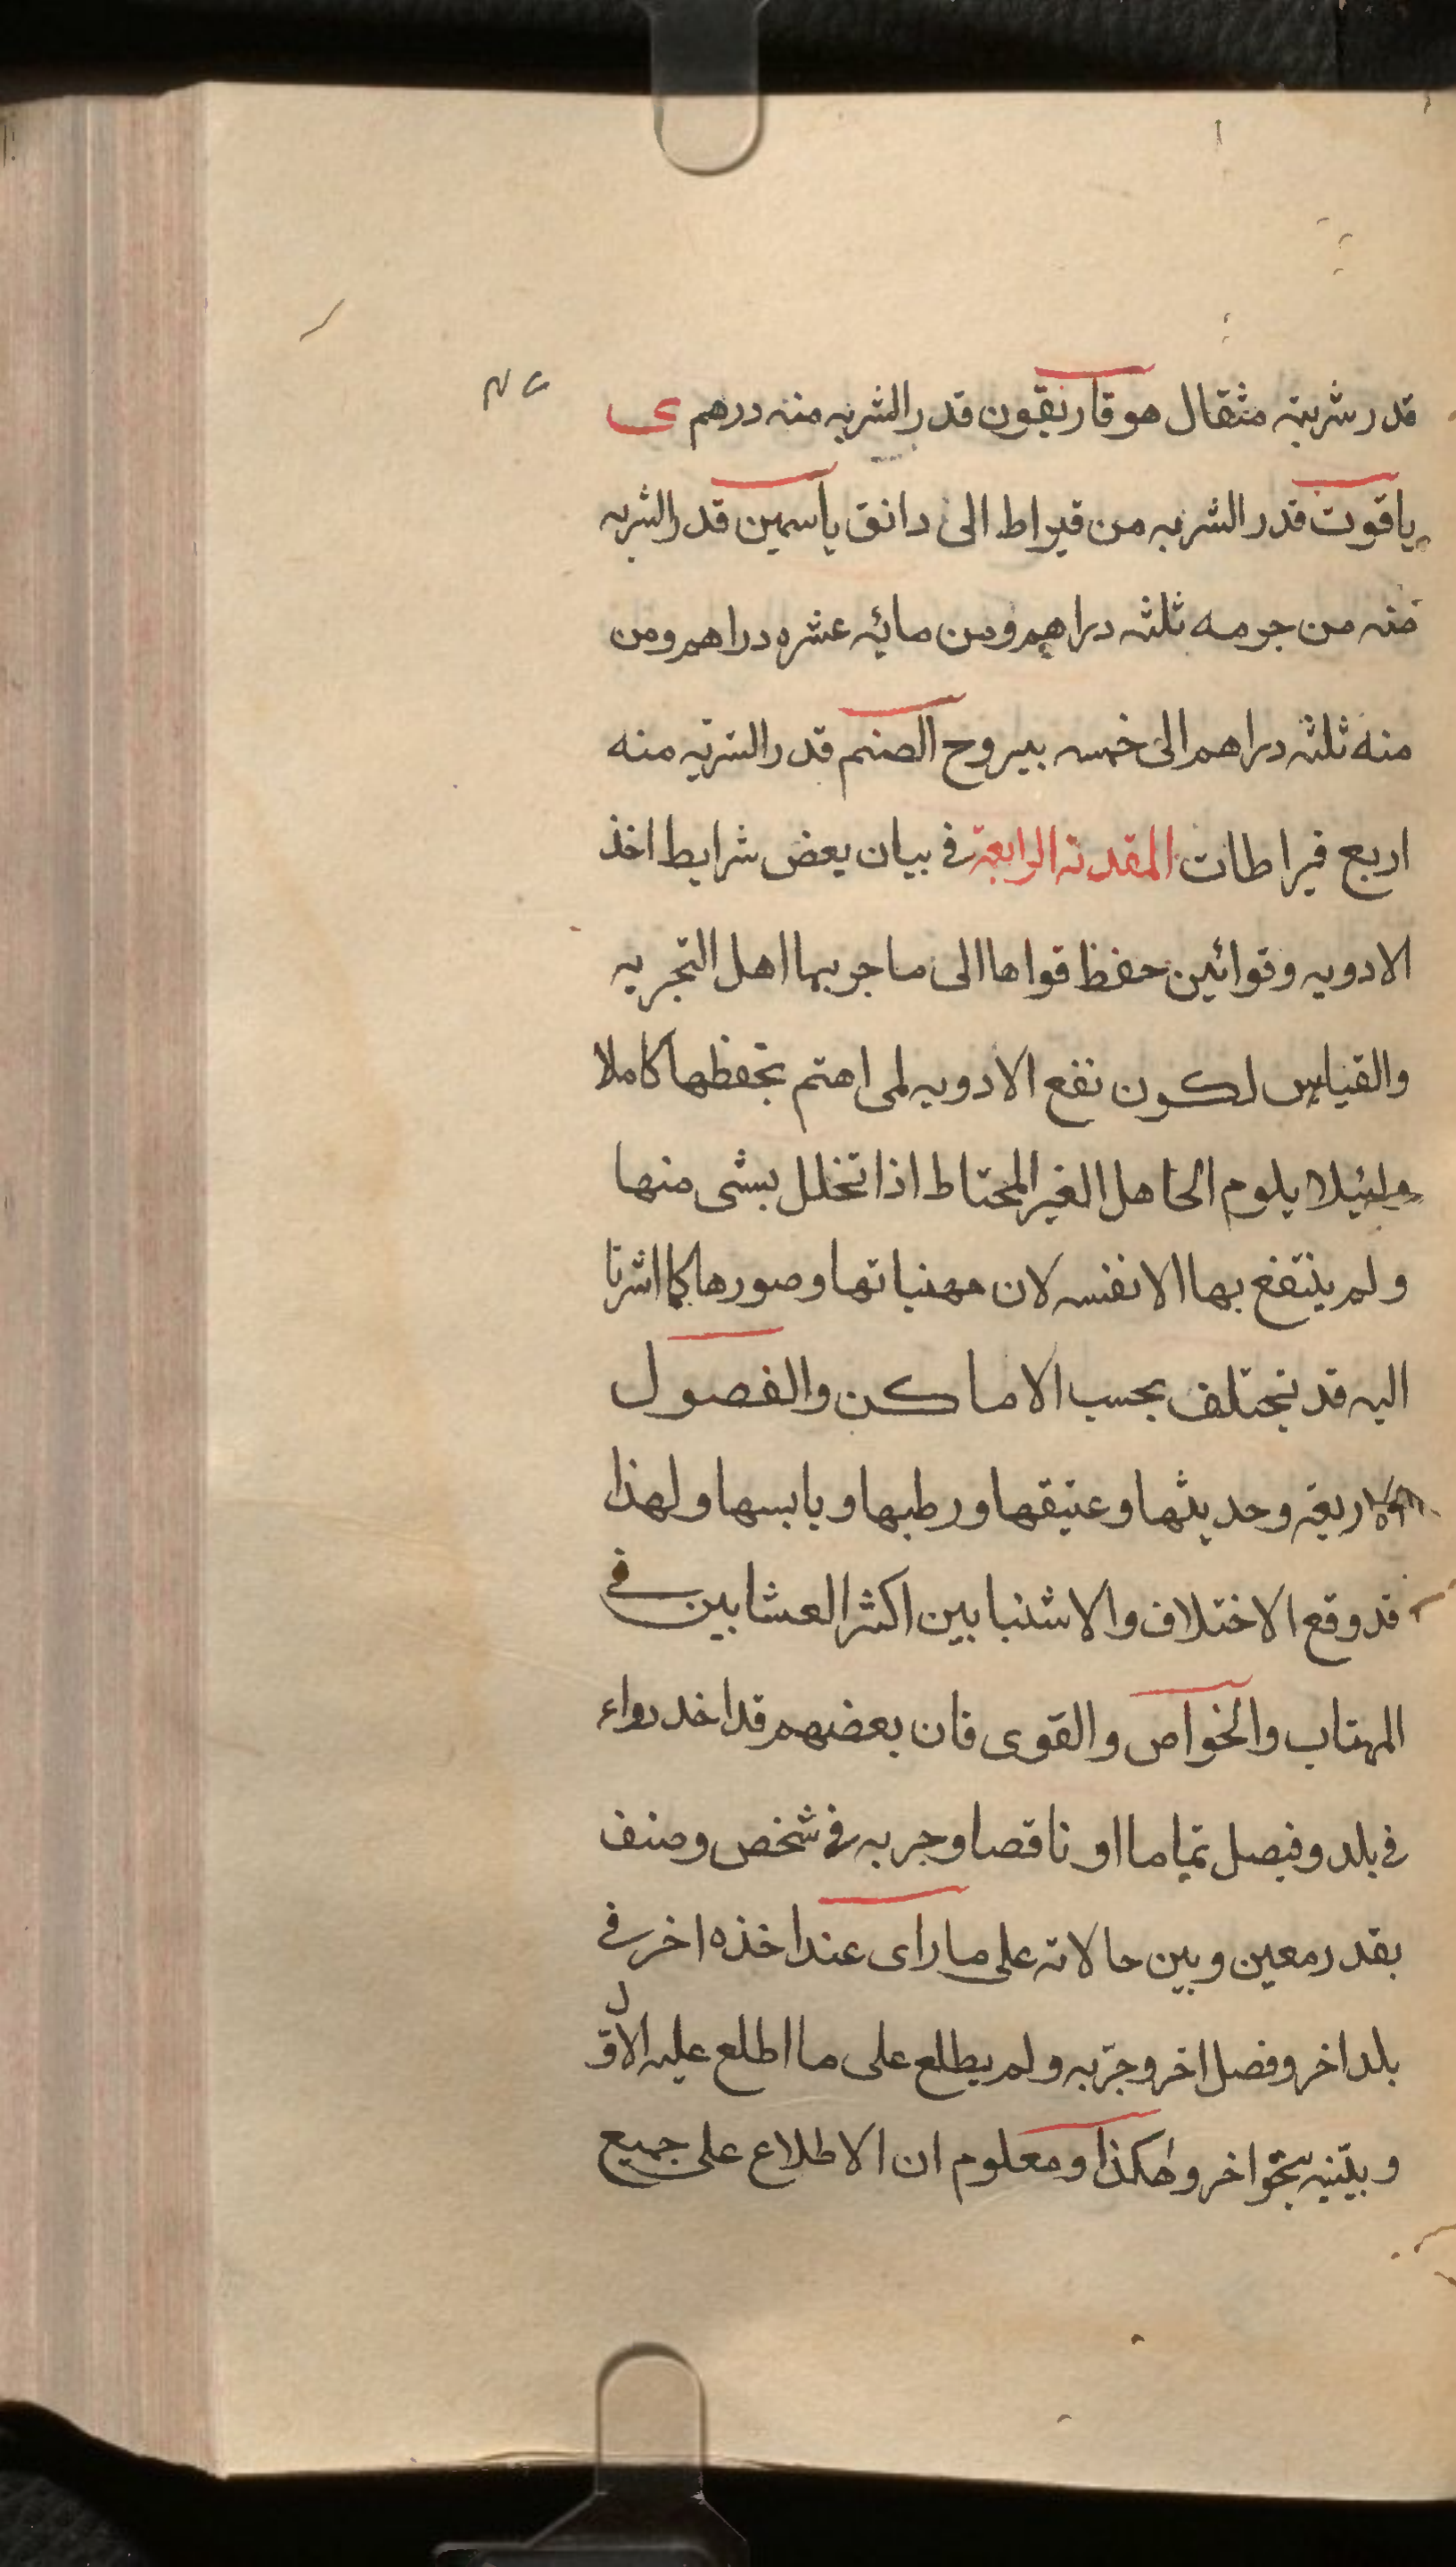 قدر شربته مثقال هوقاريقون قدر الشربه منه درهم ى
ياقوت قدر الشربه من قيراط الى دانق ياسمين قدر الشربه
منه من جرمه ثلثه دراهم ومن مائه عشره دراهم ومن
منه ثلثه دراهم الى خمسه يبروح الصنم قدر الشربه منه
اربع قيراطات المقدمة الرابعة في بيان بعض شرايط اخذ
الادويه وقوانين حفظ قواها الى ما جربها اهل التجربه
والقياس لكون نفع الادويه لمن اهتم بحفظها كاملا
ولئيلا يلوم الجاهل الغير المحتاط اذا تخلل بشى منها
ولم ينتفع بها الا نفسه لان مهنياتها وصورها كما اشرنا
اليه قد تختلف بحسب الاماكن والفصول
الاربعه وحديثها وعتيقها ورطبها ويابسها ولهذا
قد وقع الاختلاف والاشتبا بين اكثر العشابين في
المهتاب والخواص والقوى فان بعضهم قد اخد دواء
في بلد وفصل تماما او ناقصا وجربه في شخص وصنف
بقدر معين وبين حالاته على ما راى عند اخذه اخر في
بلد اخر وفصل اخر وجرّبه ولم يطلع على ما اطلع عليه الاوّل
وبيّنه بنحو اخر وهكذا ومعلوم ان الاطلاع على جميع